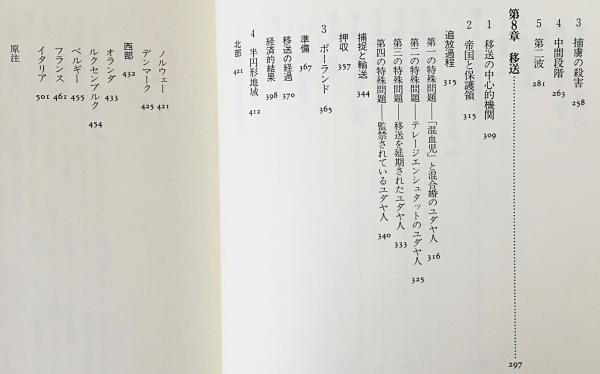 3 捕虜の殺害 258
4 中間段階 263
5 第二波 281
第8章 移送 297
1 移送の中心的機関 309
2 帝国と保護領 315
追放過程 315
第一の特殊問題——「混血児」と混合婚のユダヤ人 316
第二の特殊問題——テレージエンシュタットのユダヤ人 325
第三の特殊問題——移送を延期されたユダヤ人 333
第四の特殊問題——監禁されているユダヤ人 340
捕捉と輸送 344
押収 357
3 ポーランド 365
準備 367
移送の経過 370
経済的結果 398
4 半円形地域 412
北部 421
ノルウェー 421
デンマーク 425
西部 432
オランダ 433
ルクセンブルク 454
ベルギー 455
フランス 461
イタリア 501
原注